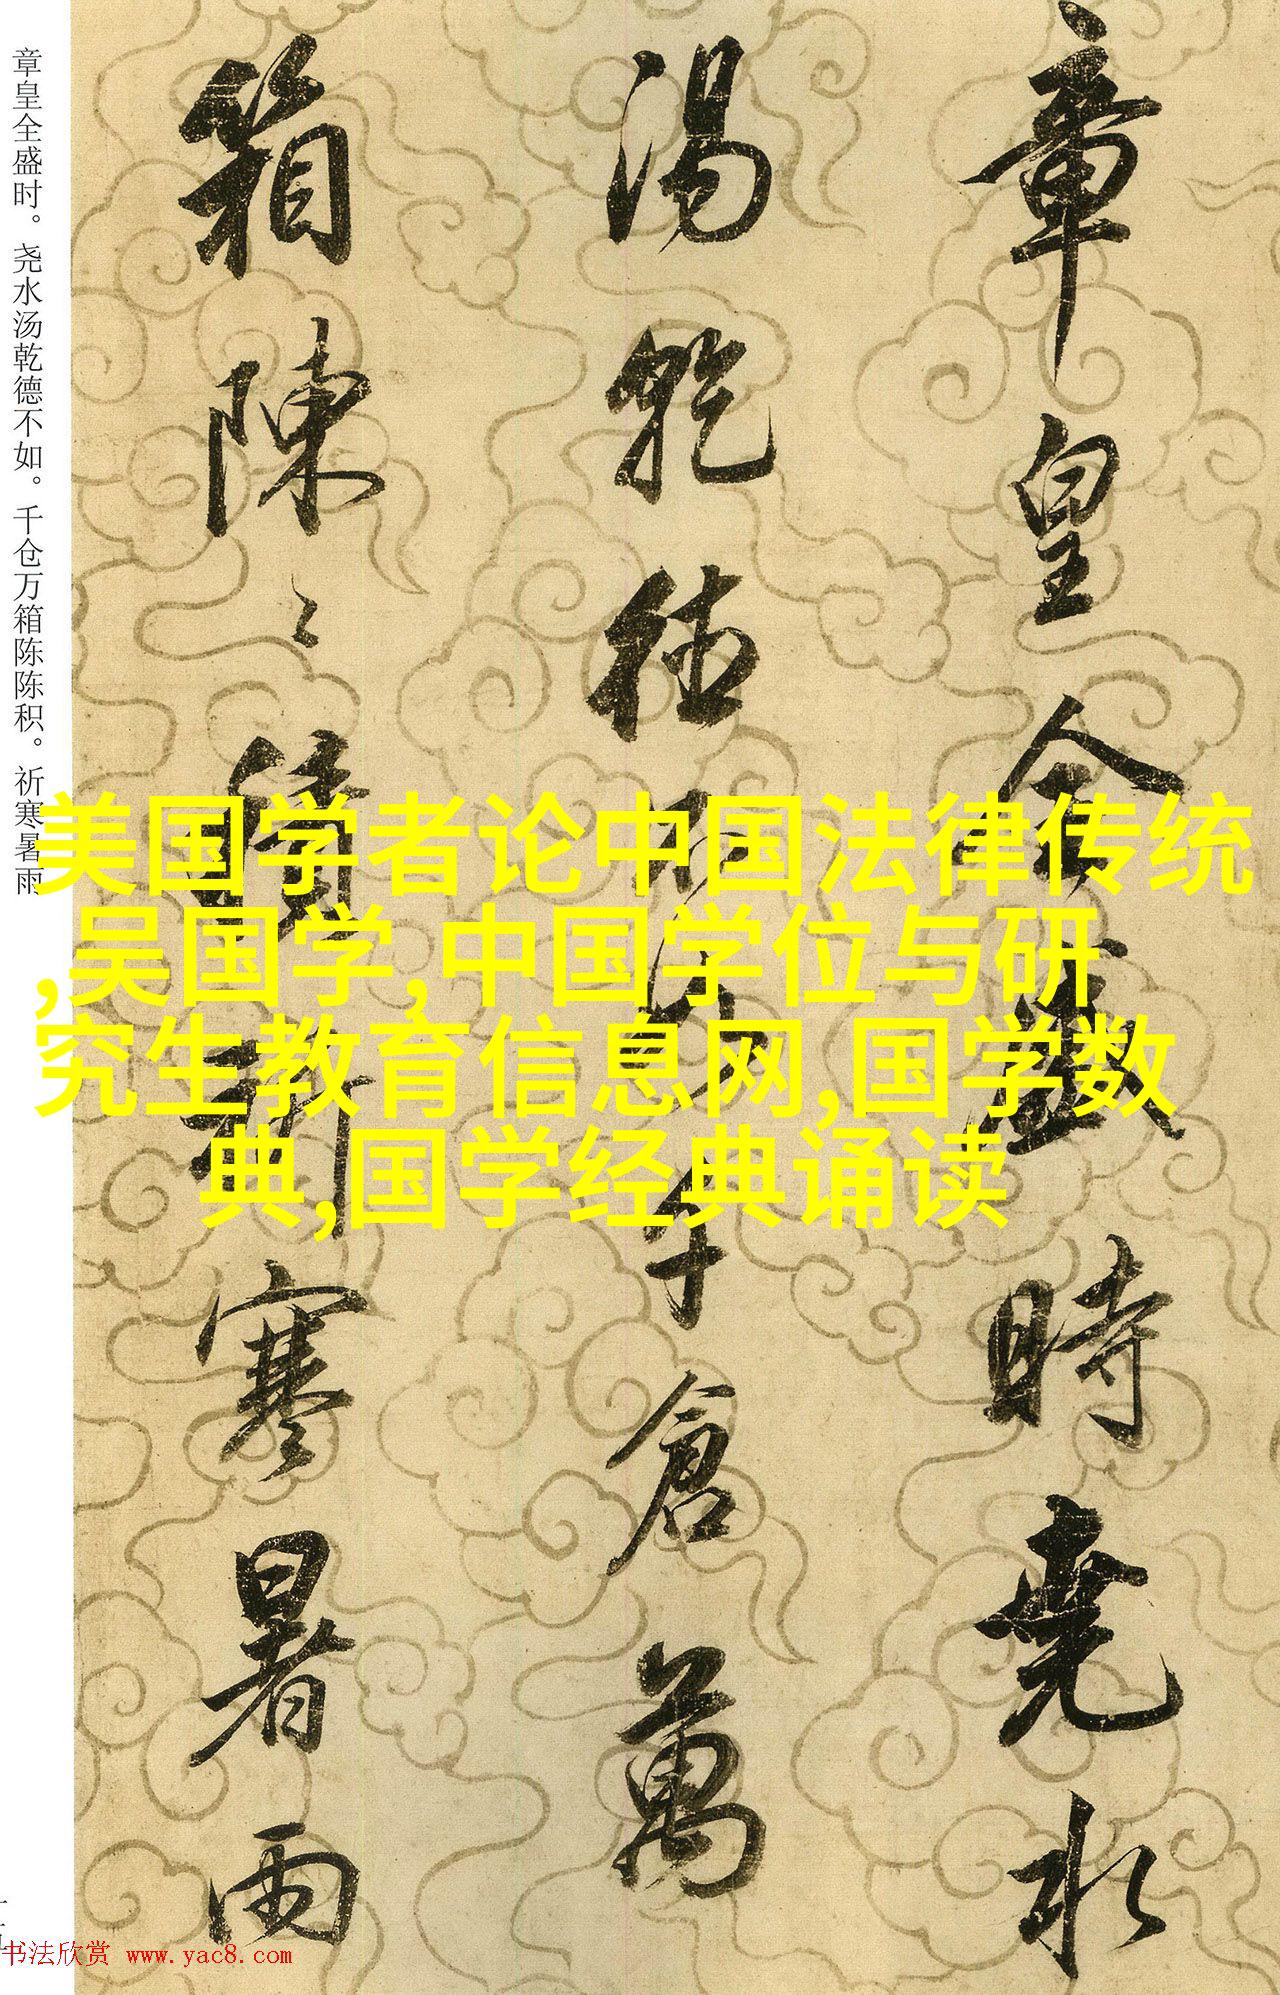 章皇全盛時堯水
湯乾德不如千倉萬
箱陳〻積祈寒暑雨
章皇全盛时。尧水汤乾德不如。千仓万箱陈陈积。祈寒暑雨
美国学者论中国法律传统
,吴国学,中国学位与研
究生教育信息网,国学数
典,国学经典诵读
书法欣赏 www.yac8.com